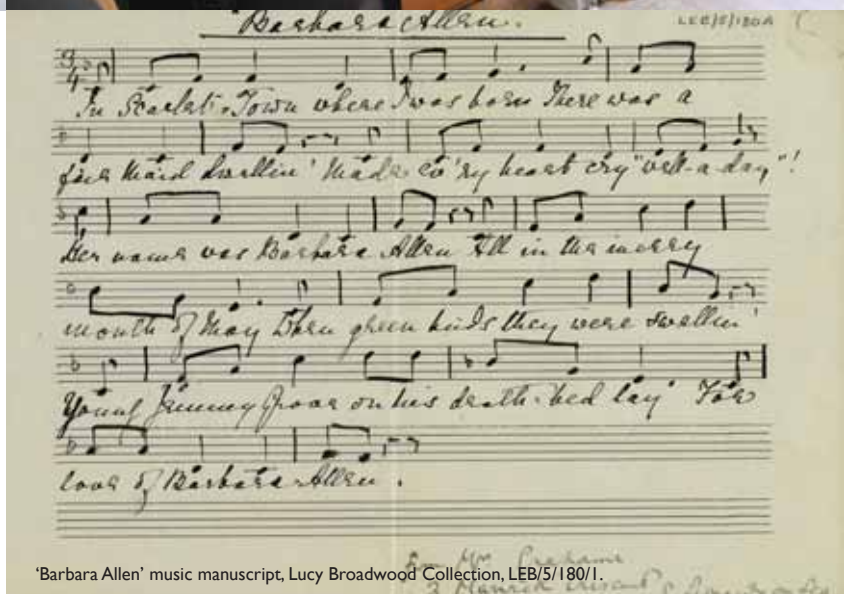 Barbara Allen.
LEB/5/180A
3
4
In Scarlet-Town where I was born There was a
fair maid dwellin' Made ev'ry heart cry "well-a-day"!
Her name was Barbara Allen All in the merry
month of May When green buds they were swellin'
Young Jemmy Grove on his death-bed lay For
love of Barbara Allen.
'Barbara Allen' music manuscript, Lucy Broadwood Collection, LEB/5/180/1.